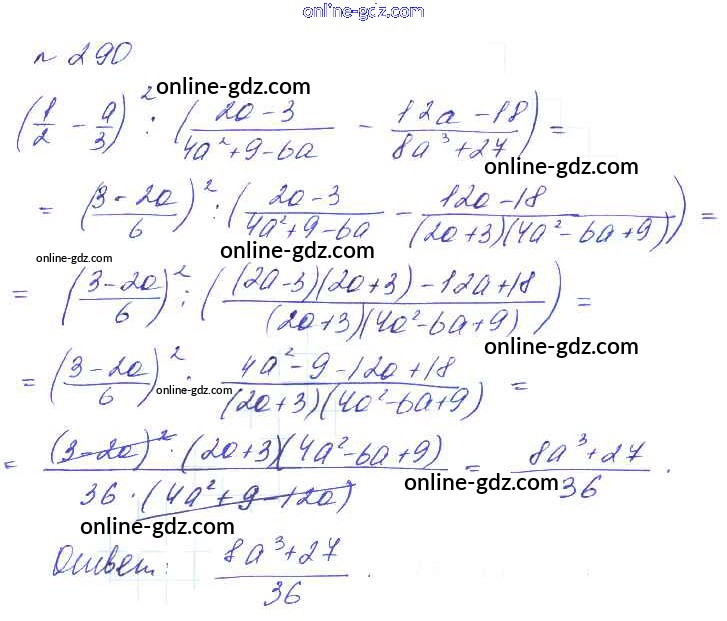 online-gdz.com
№ 290
online-gdz.com
(1/2 - a/3)² : ((2a-3)/(4a²+9-6a) - (12a-18)/(8a³+27)) =
online-gdz.com
= ((3-2a)/6)² : ((2a-3)/(4a²+9-6a) - (12a-18)/((2a+3)(4a²-6a+9))) =
online-gdz.com
online-gdz.com
= ((3-2a)/6)² : (((2a-3)(2a+3)-12a+18)/((2a+3)(4a²-6a+9))) =
online-gdz.com
= ((3-2a)/6)² : (4a²-9-12a+18)/((2a+3)(4a²-6a+9)) =
online-gdz.com
= ((3-2a)²·(2a+3)(4a²-6a+9))/(36·(4a²+9-12a)) = (8a³+27)/36.
online-gdz.com
online-gdz.com
Ответ: (8a³+27)/36.